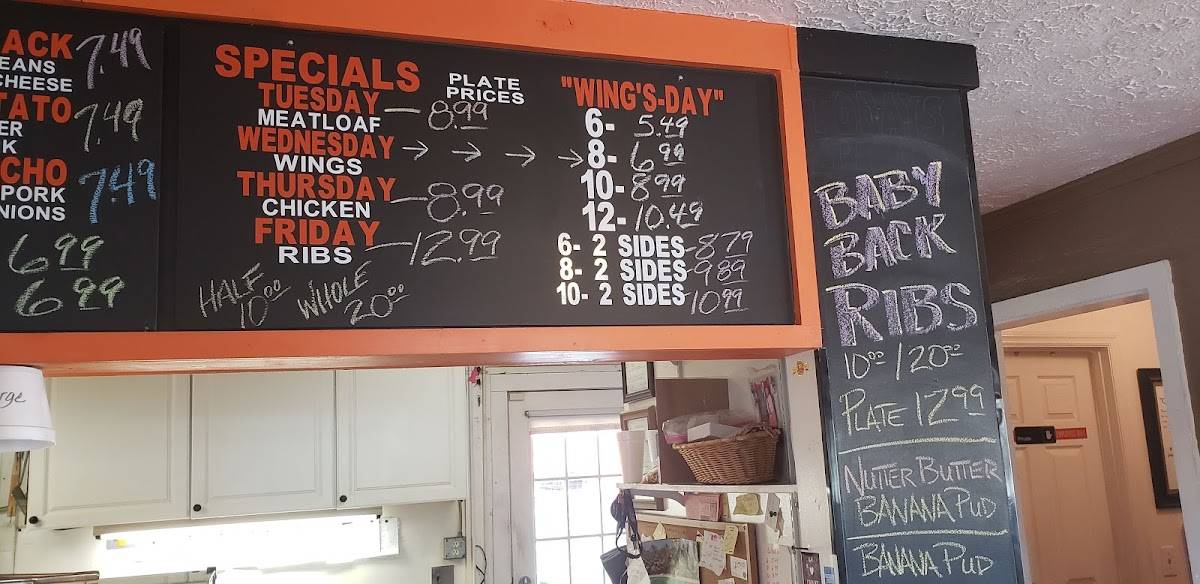 ACK 7.49
EANS
CHEESE
TATO 7.49
ER
K
CHO 7.49
PORK
NIONS
6.99
6.99
SPECIALS
PLATE
PRICES
TUESDAY
MEATLOAF — 8.99
WEDNESDAY → → → →
WINGS
THURSDAY
CHICKEN — 8.99
FRIDAY
RIBS — 12.99
HALF 10.00 WHOLE 20.00
"WING'S-DAY"
6- 5.49
8- 6.99
10- 8.99
12- 10.49
6- 2 SIDES - 8.79
8- 2 SIDES - 9.89
10- 2 SIDES 10.99
BABY
BACK
RIBS
10.00 / 20.00
PLATE 12.99
NUTTER BUTTER
BANANA PUD
BANANA PUD
rge